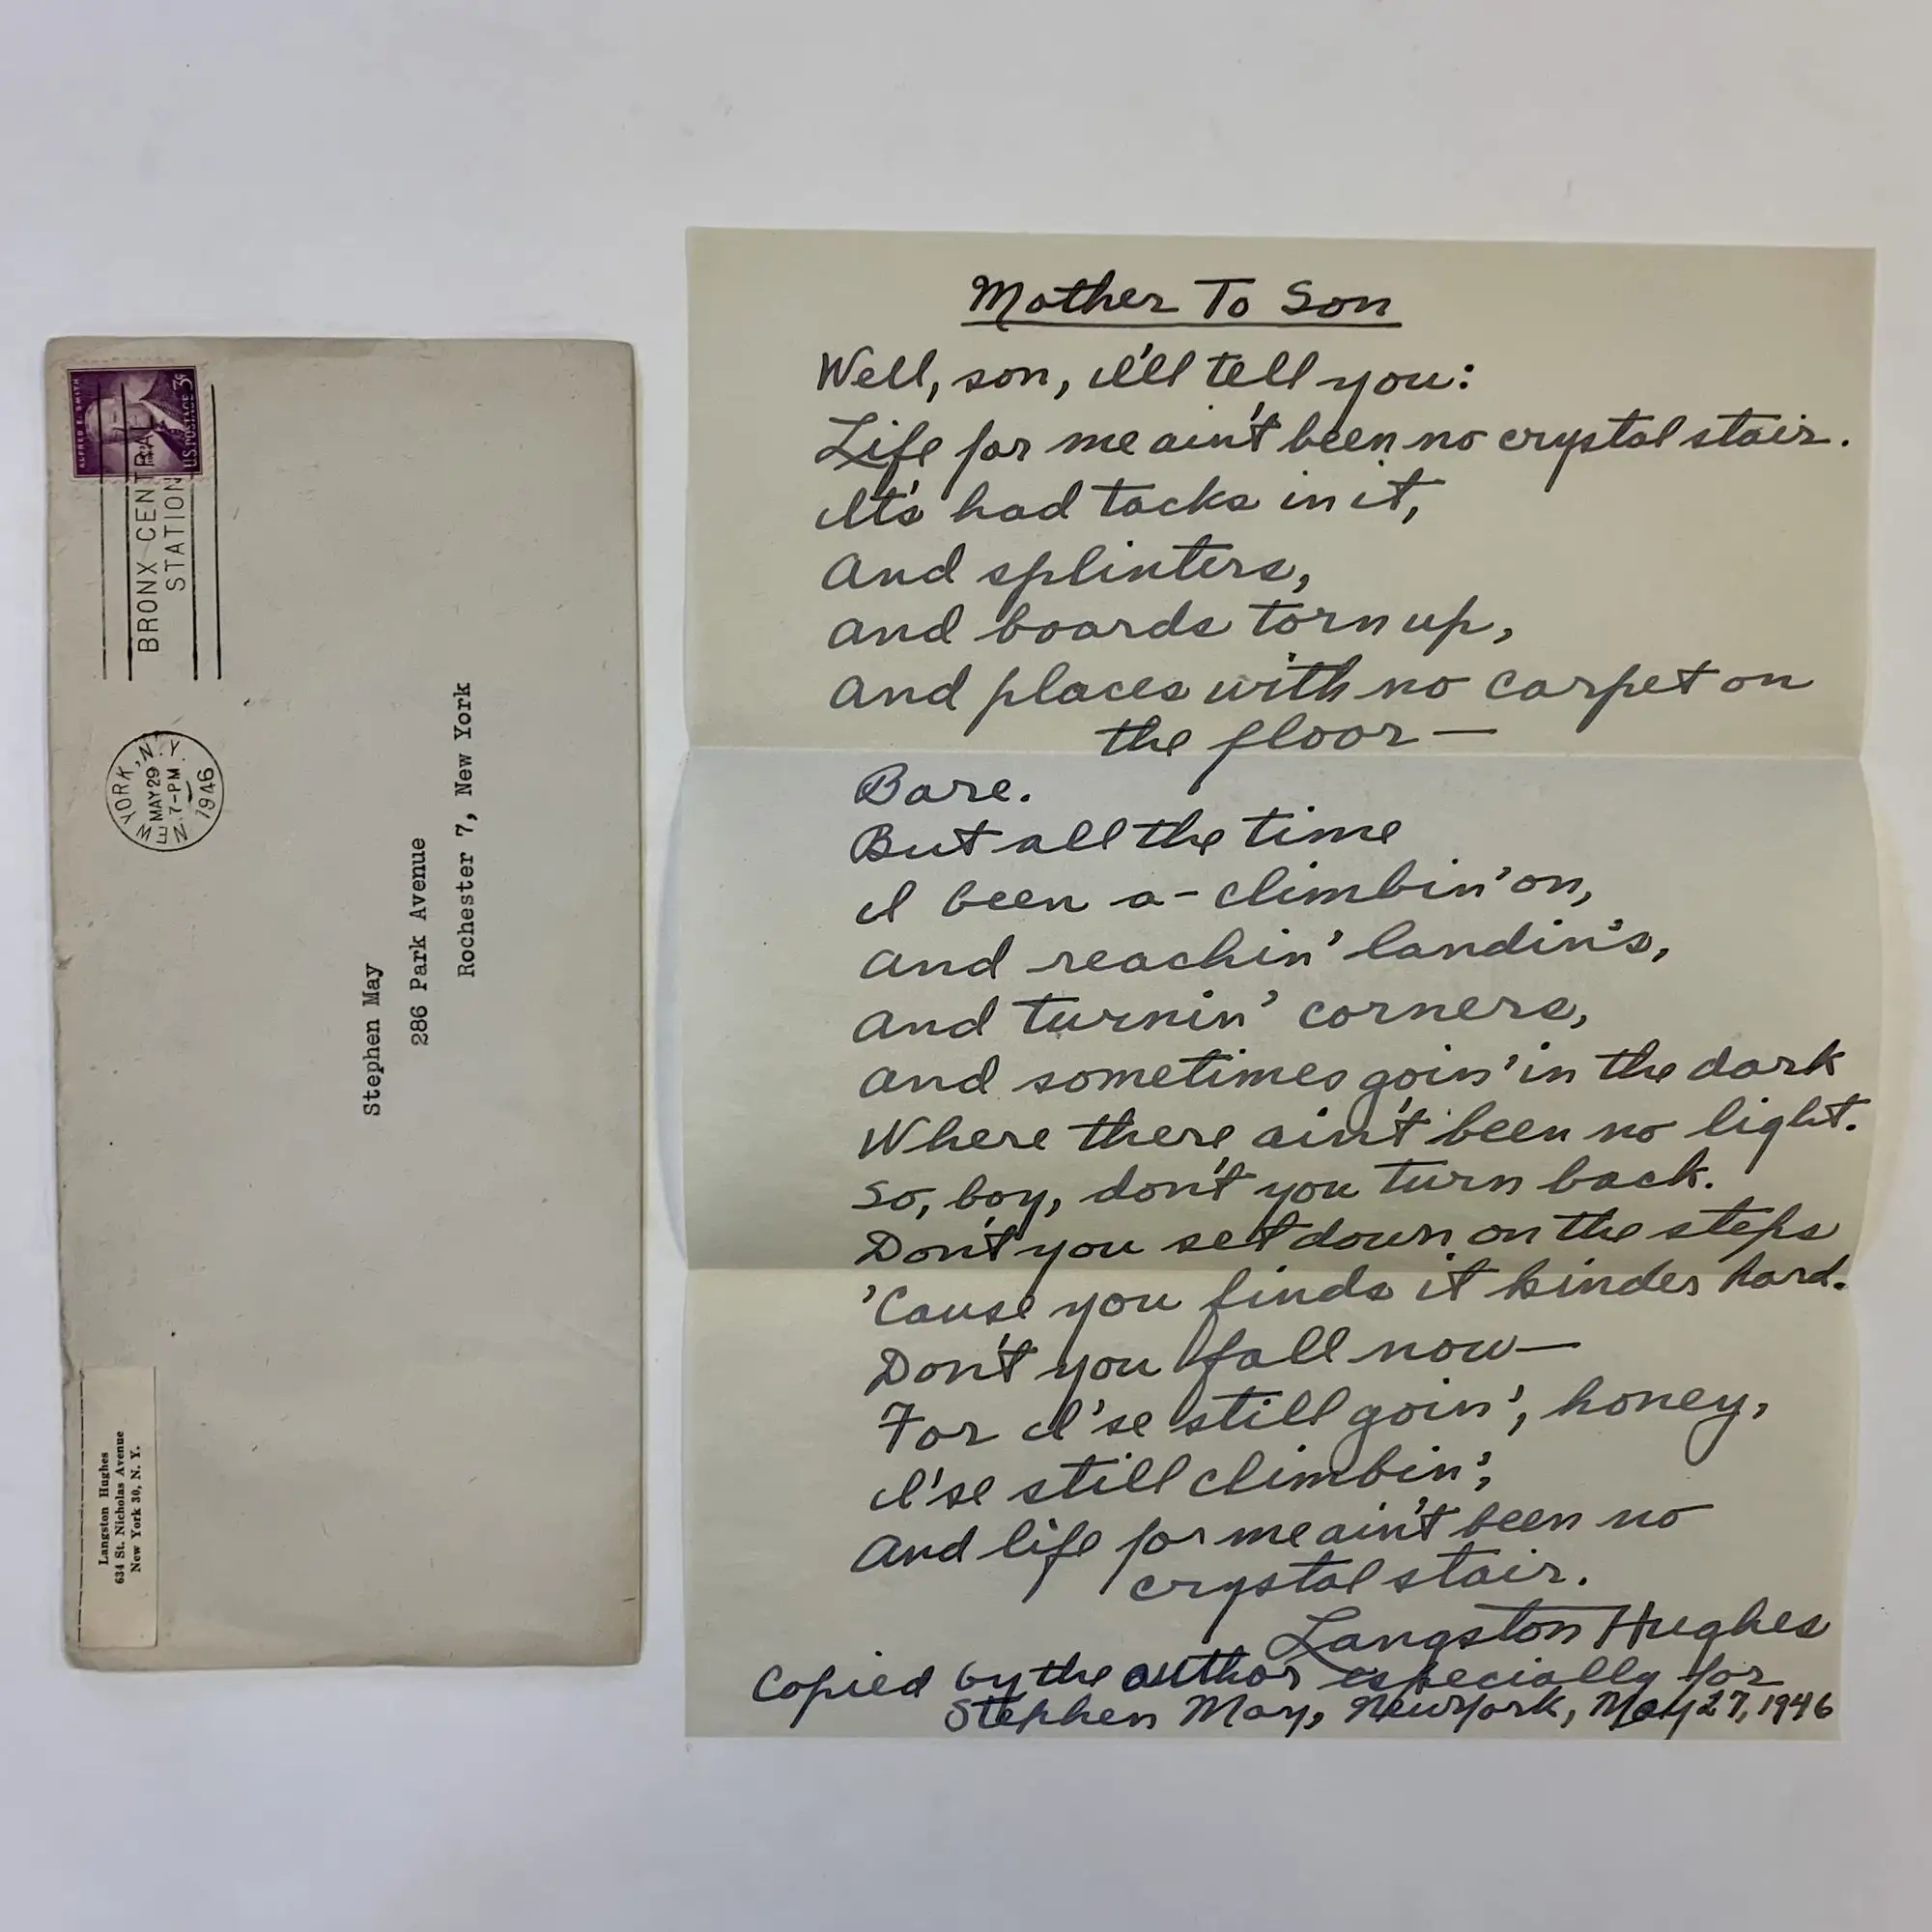 ALFRED E. SMITH
U.S. POSTAGE 3¢
BRONX CENTRAL
STATION
NEW YORK, N.Y.
MAY 29
7-PM
1946
Stephen May
286 Park Avenue
Rochester 7, New York
Langston Hughes
634 St. Nicholas Avenue
New York 30, N. Y.
Mother To Son
Well, son, I'll tell you:
Life for me ain't been no crystal stair.
It's had tacks in it,
And splinters,
And boards torn up,
And places with no carpet on
the floor—
Bare.
But all the time
I been a-climbin' on,
And reachin' landin's,
And turnin' corners,
And sometimes goin' in the dark
Where there ain't been no light.
So, boy, don't you turn back.
Don't you set down on the steps
'Cause you finds it kinder hard.
Don't you fall now—
For I'se still goin', honey,
I'se still climbin',
And life for me ain't been no
crystal stair.
Langston Hughes
Copied by the author especially for
Stephen May, New York, May 27, 1946